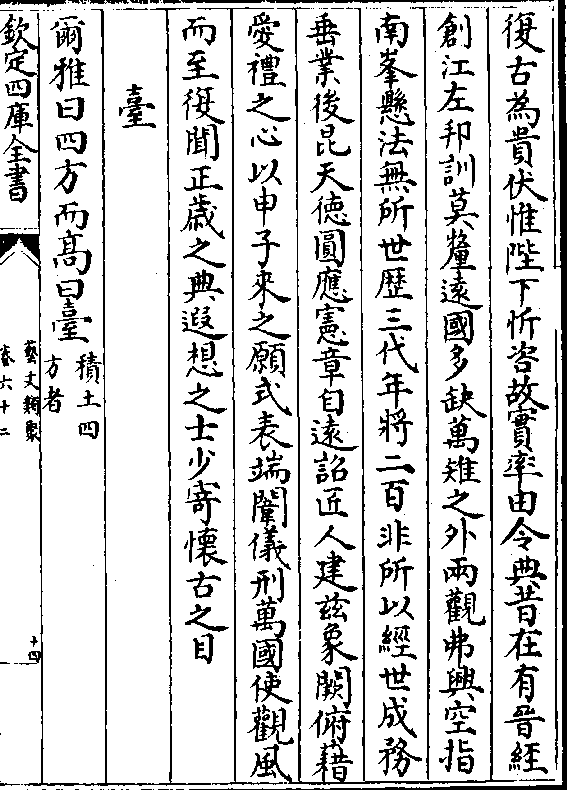 復古為貴伏惟陛下忻咨故實率由令典昔在有晉經
創江左邦訓莫釐遠國多缺萬雉之外兩觀弗興空指
南峯懸法無所世歷三代年將二百非所以經世成務
垂業後昆天德圓應憲章自遠詔匠人建兹象闕俯藉
愛禮之心以申子來之願式表端闈儀刑萬國使觀風
而至復聞正歲之典遐想之士少寄懷古之目
臺
爾雅曰四方而髙曰臺
積土四
方者
欽定四庫全書
藝文類聚
卷六十二
十四